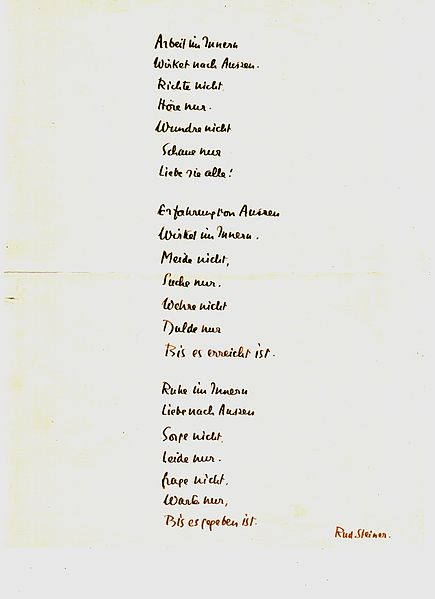 Arbeit im Innern
Wirket nach Aussen.
Richte nicht
Höre nur.
Wundre nicht
Schaue nur
Liebe sie alle!
Erfahrung von Aussen
Wirket im Innern.
Meide nicht,
Suche nur.
Wehre nicht
Dulde nur
Bis es erreicht ist.
Ruhe im Innern
Liebe nach Aussen
Sorge nicht,
Leide nur.
frage nicht,
Warte nur,
Bis es gegeben ist.
Rud. Steiner.